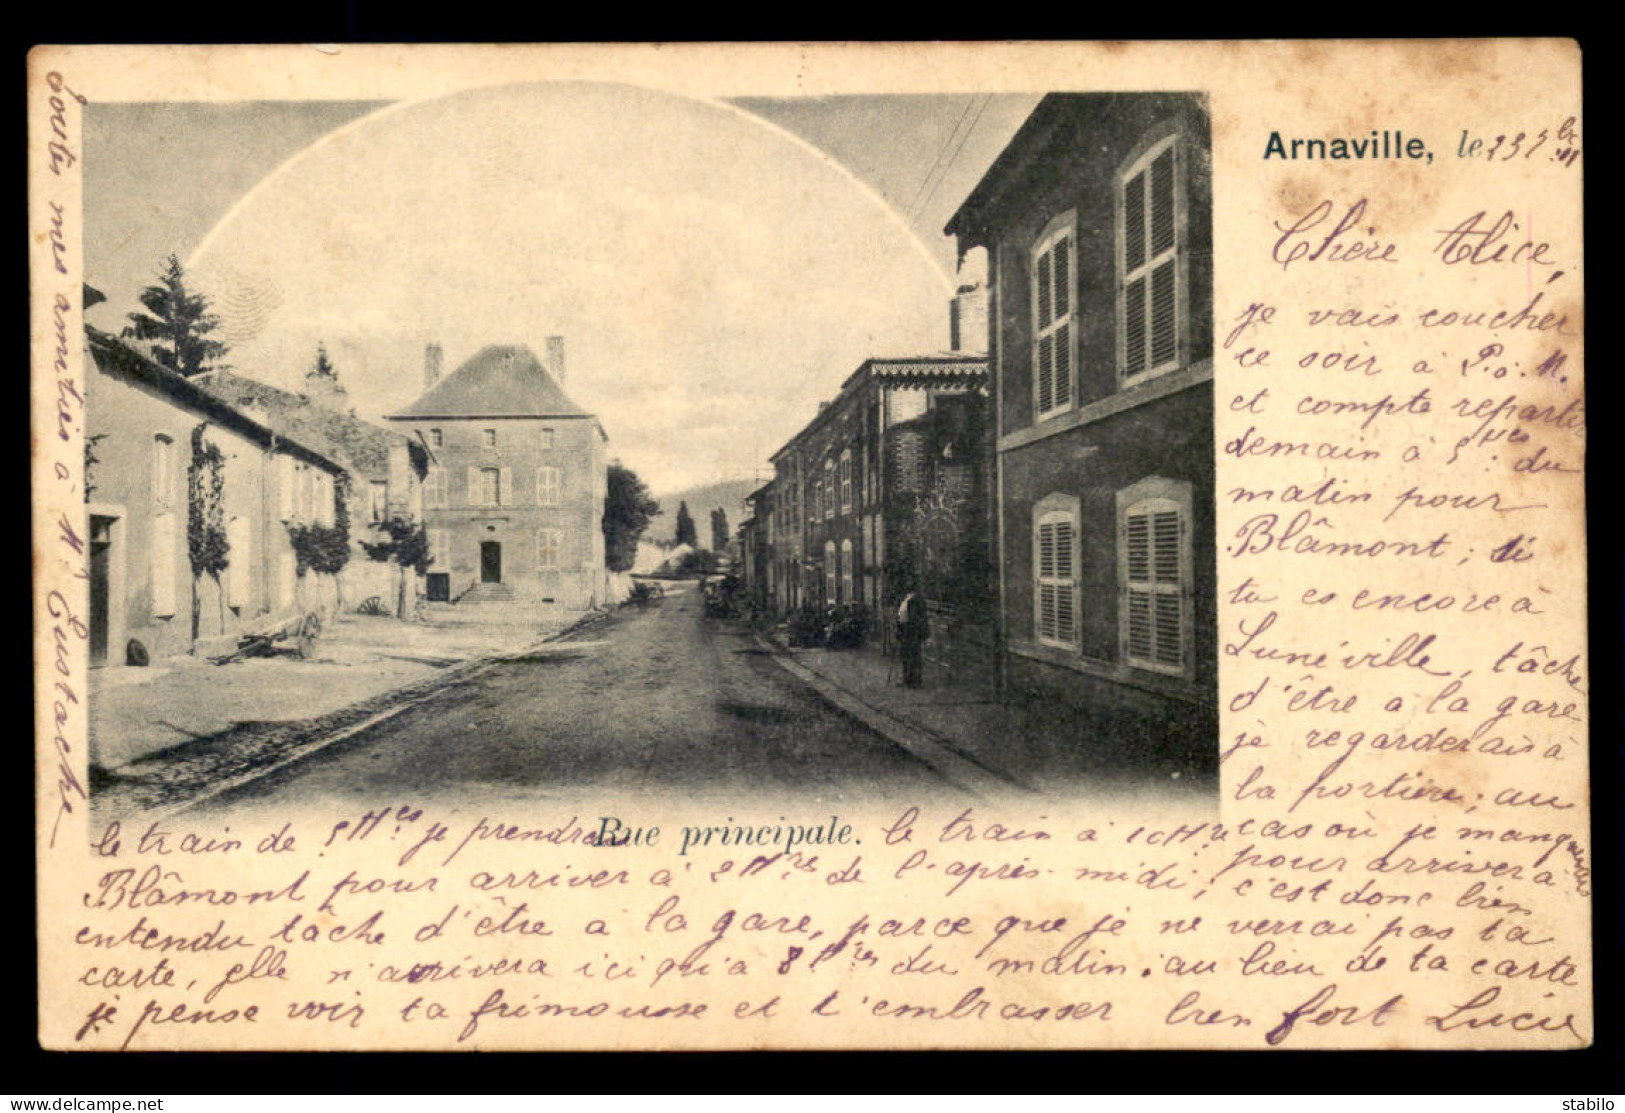 Arnaville, le
Chère Alice,
je vais coucher
ce soir à P.à.M.
et compte repartir
demain à 5Hes du
matin pour
Blâmont ; si
tu es encore à
Lunéville, tâche
d'être à la gare
je regarderais à
la portière ; au
cas où je manquerais
le train de 5Hes je prendrai le train à 10Hre pour arriver à
Blâmont pour arriver à 2Hres de l'après-midi ; c'est donc bien
entendu tâche d'être à la gare, parce que je ne verrai pas ta
carte, elle n'arrivera ici qu'à 8Hres du matin. au lieu de ta carte
je pense voir ta frimousse et t'embrasser bien fort Lucie
Rue principale.
toutes mes amitiés à Mr Eustache
www.delcampe.net
stabilo